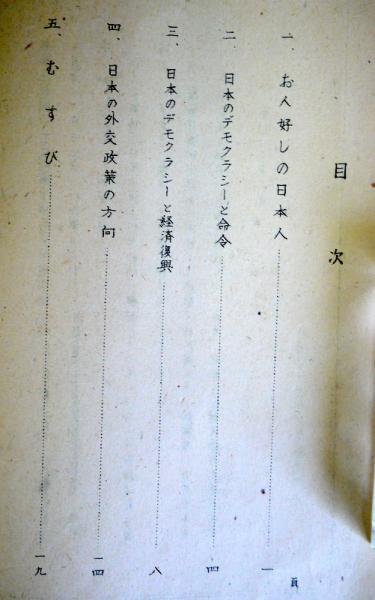 目次
頁
一、お人好しの日本人……一
二、日本のデモクラシーと命令……四
三、日本のデモクラシーと経済復興……八
四、日本の外交政策の方向……一四
五、むすび……一九